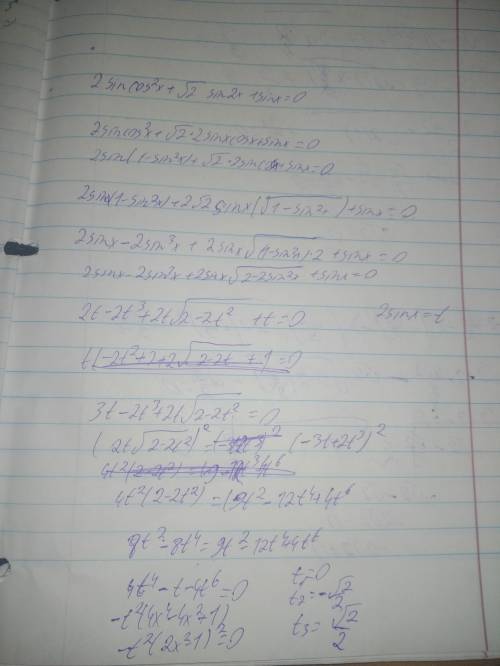 2sincos²x + √2 sin2x + sinx = 0
2sincos²x + √2·2sinxcosx + sinx = 0
2sin(1-sin²x) + √2·2sincosx + sinx = 0
2sin(1-sin²x) + 2√2 sinx(√1-sin²x) + sinx = 0
2sinx - 2sin³x + 2sinx√(1-sin²x)·2 + sinx = 0
2sinx - 2sin³x + 2sinx√2-2sin²x + sinx = 0
2t - 2t³ + 2t√2-2t² + t = 0 2sinx = t
t(-2t²+2+2√2-2t +1) = 0
3t - 2t³ + 2t√2-2t² = 0
(2t√2-2t²)² = (-3t+2t³)²
4t²(2-2t²) = 9t² - 12t⁴ + 4t⁶
8t² - 8t⁴ = 9t² - 12t⁴ + 4t⁶
4t⁴ - t - 4t⁶ = 0 t₁ = 0
-t²(4x⁴-4x²+1) t₂ = -√2/2
-t²(2x²-1)² = 0 t₃ = √2/2